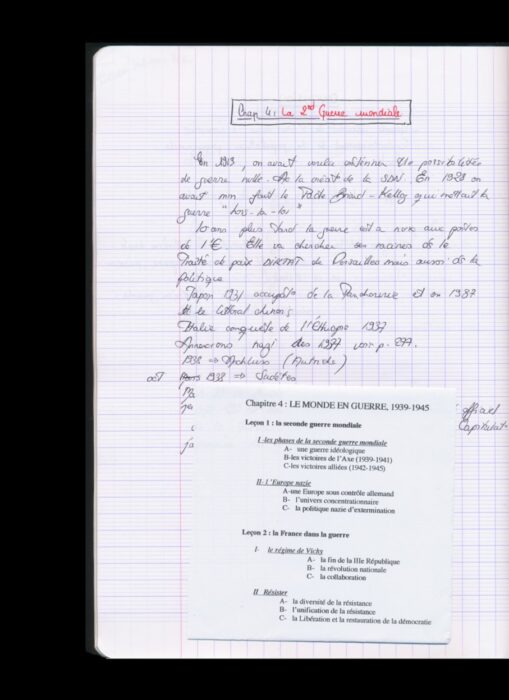 Chap 4: La 2nd Guerre mondiale
En 1919, on avait voulu
de guerre nulle. de la SDN. En 1928 on
avait mm fait le Pacte Briand-Kellog qui mettait la
guerre "hors-la-loi"
10 ans plus tard la guerre est à nvx aux portes
de l'E. Elle va chercher ses racines ds le
Traité de paix DIKTAT de Versailles mais aussi ds la
politique
Japon 1931 occupat° de la Mandchourie et en 1937
le littoral chinois
Italie conquête de l'Éthiopie 1937
Annexions nazi dès 1937 voir p. 277.
1938 => (Autriche)
oct 1938 => Sudètes
officiel
Capitulat°
Chapitre 4 : LE MONDE EN GUERRE, 1939-1945
Leçon 1 : la seconde guerre mondiale
I -les phases de la seconde guerre mondiale
A- une guerre idéologique
B-les victoires de l'Axe (1939-1941)
C-les victoires alliées (1942-1945)
II- l'Europe nazie
A-une Europe sous contrôle allemand
B- l'univers concentrationnaire
C- la politique nazie d'extermination
Leçon 2 : la France dans la guerre
I- le régime de Vichy
A- la fin de la IIIe République
B- la révolution nationale
C- la collaboration
II Résister
A- la diversité de la résistance
B- l'unification de la résistance
C- la Libération et la restauration de la démocratie